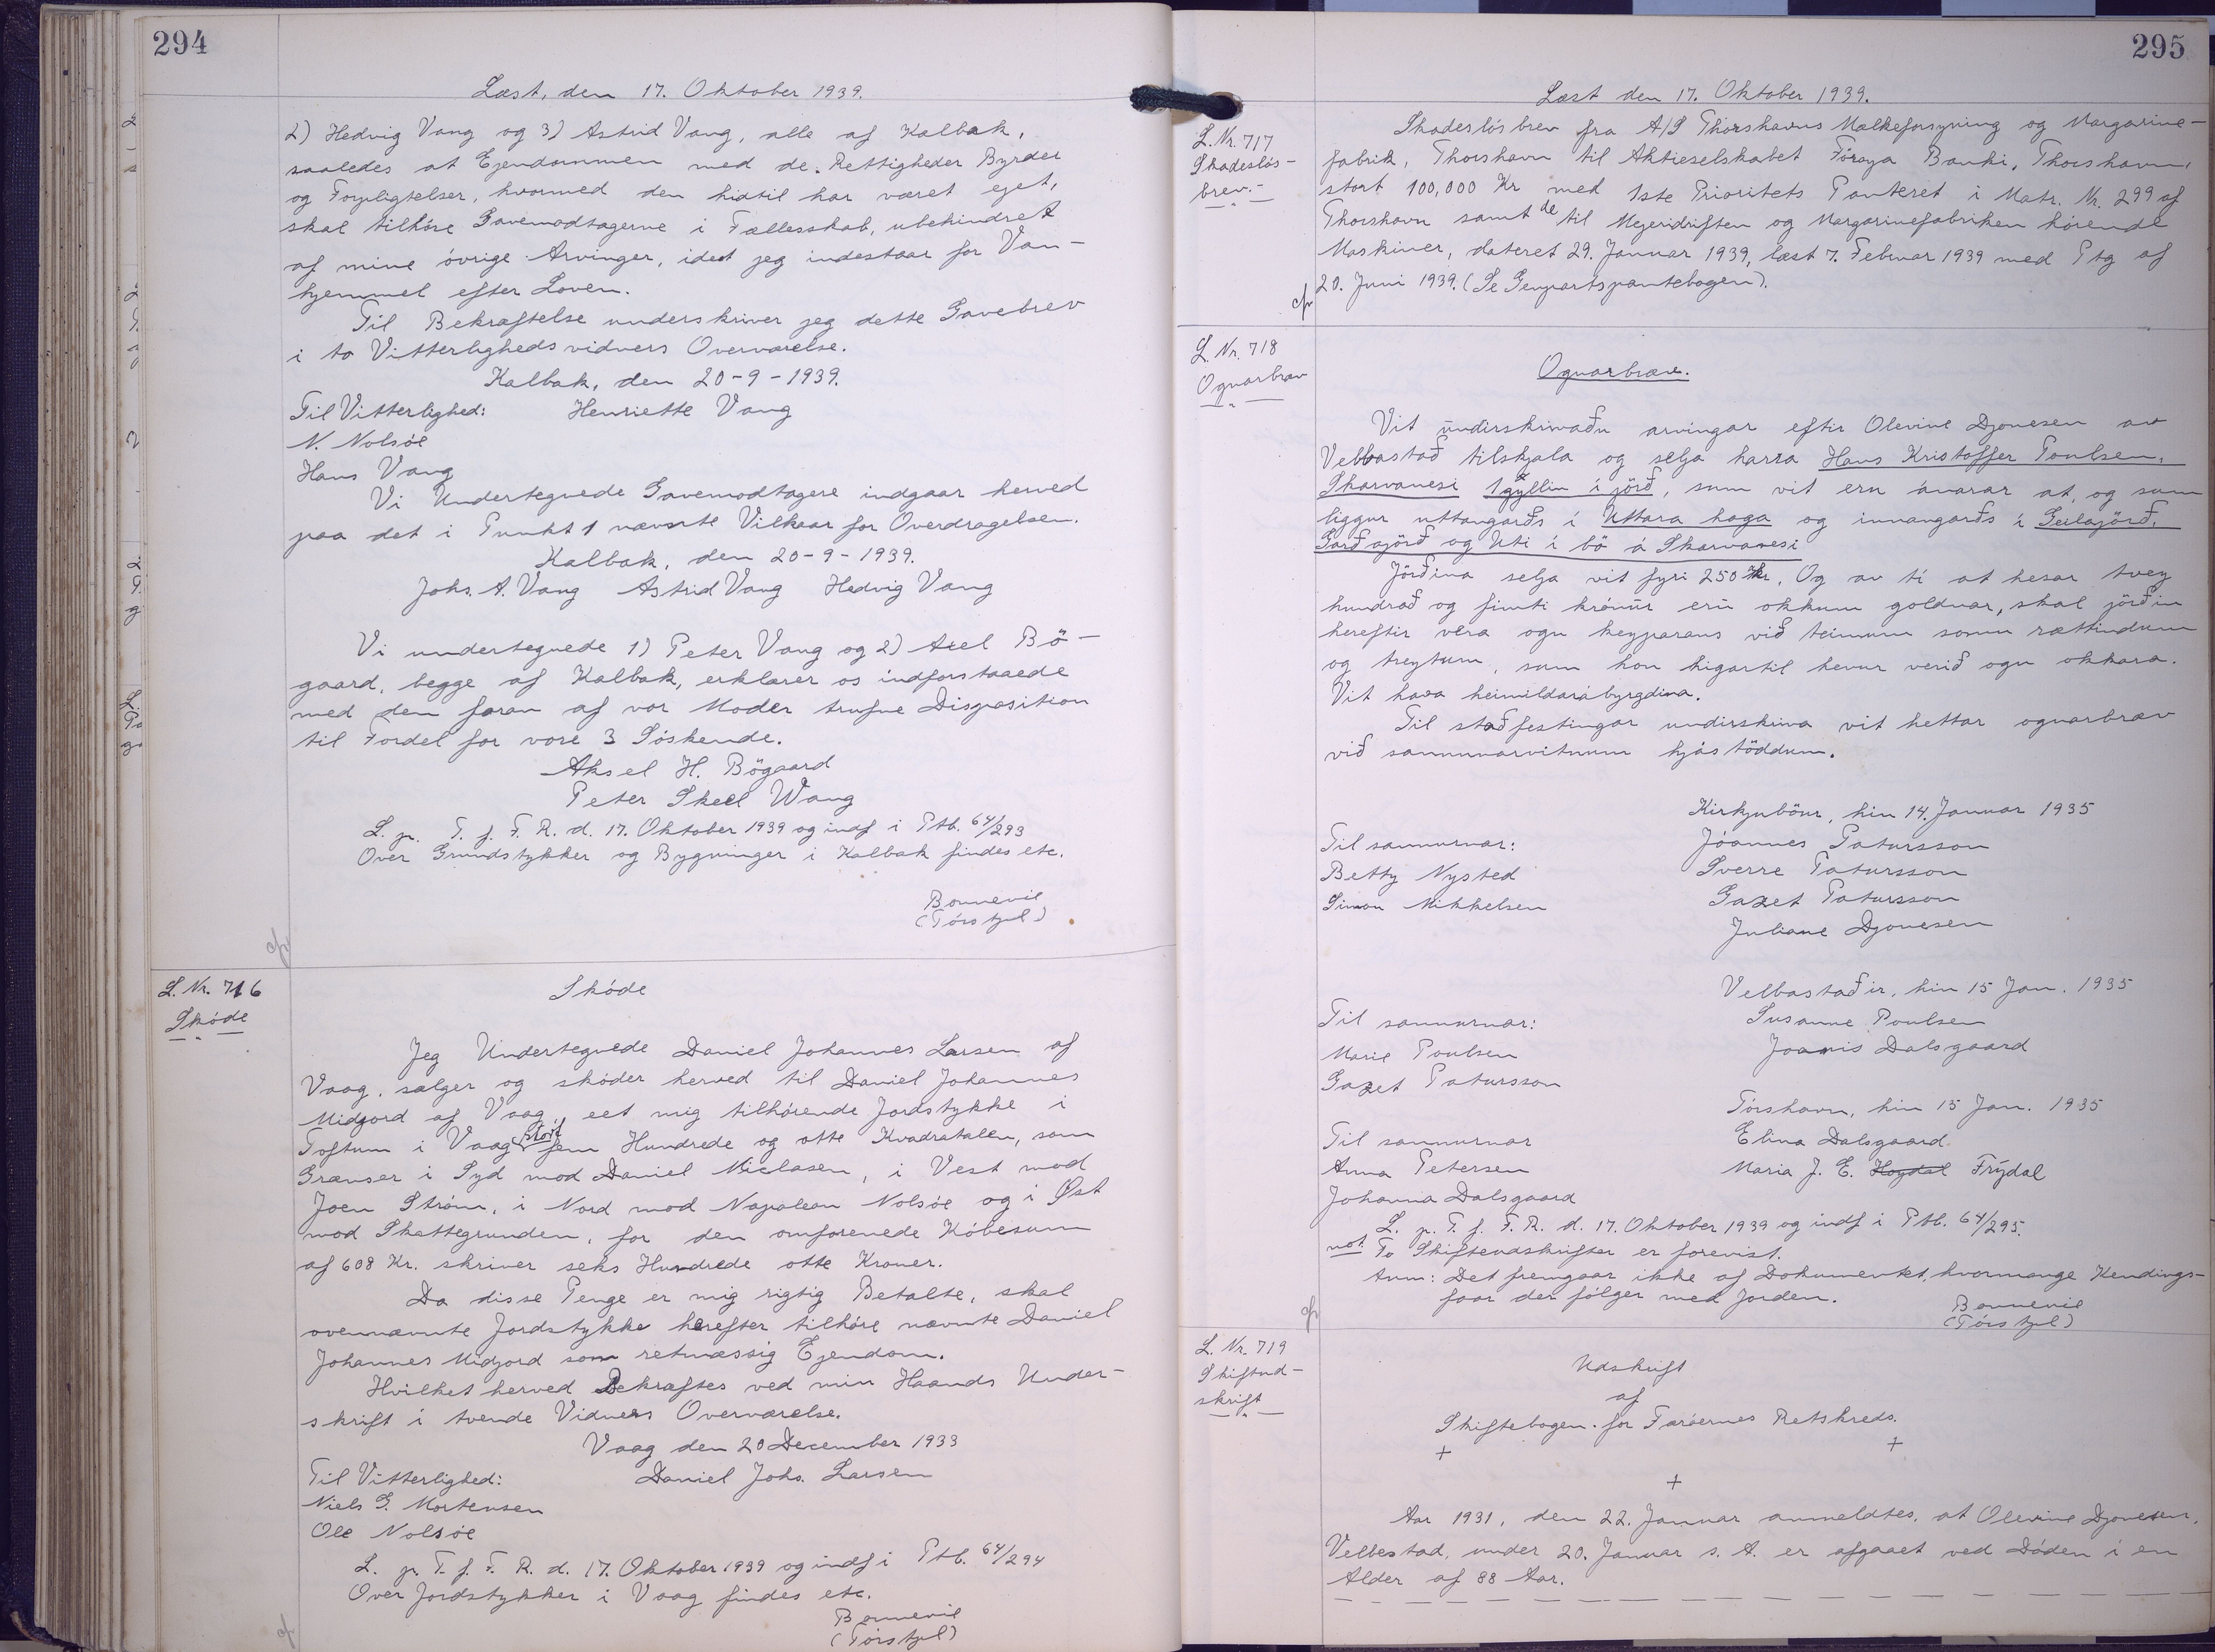 294
Læst, den 17. Oktober 1939.
2) Hedvig Vang og 3) Astrid Vang, alle af Kalbak,
saaledes at Ejendommen med de Rettigheder Byrder
og Forpligtelser, hvormed den hidtil har været ejet,
skal tilhöre Gavemodtagerne i Fællesskab, ubehindret
af mine övrige Arvinger, idet jeg indestaar for Van-
hjemmel efter Loven.
Til Bekræftelse underskriver jeg dette Gavebrev
i to Vitterlighedsvidners Overværelse.
Kalbak, den 20-9-1939.
Til Vitterlighed: Henriette Vang
N. Nolsöe
Hans Vang
Vi Undertegnede Gavemodtagere indgaar herved
paa det i Punkt 1 nævnte Vilkaar for Overdragelsen.
Kalbak, den 20-9-1939.
Johs. A. Vang Astrid Vang Hedvig Vang
Vi undertegnede 1) Peter Vang og 2) Axel Bö-
gaard, begge af Kalbak, erklærer os indforstaaede
med den foran af vor Moder trufne Disposition
til Fordel for vore 3 Söskende.
Aksel H. Bögaard
Peter Skeel Wang
L. p. T. f. F. R. d. 17. Oktober 1939 og indf i Ptb. 64/293
Over Grundstykker og Bygninger i Kalbak findes etc.
Bonnevie
(Tórstjul)
L. Nr. 716
Sköde
Sköde
Jeg Undertegnede Daniel Johannes Larsen af
Vaag, sælger og sköder herved til Daniel Johannes
Midjord af Vaag, eet mig tilhörende Jordstykke i
Toftum i Vaag stort fem Hundrede og otte Kvadratalen, som
Grænser i Syd mod Daniel Niclasen, i Vest mod
Joen Ström, i Nord mod Napalean Nolsöe og i Øst
mod Skattegrunden, for den omforenede Köbesum
af 608 Kr. skriver seks Hundrede otte Kroner.
Da disse Penge er mig rigtig Betalte, skal
ovennævnte Jordstykke herefter tilhöre nævnte Daniel
Johannes Midjord som retmæssig Ejendom.
Hvilket herved Bekræftes ved min Haands Under-
skrift i tvende Vidners Overværelse.
Vaag den 20 December 1933
Til Vitterlighed: Daniel Johs. Larsen
Niels G. Mortensen
Ole Nolsöe
L. p. T. f. F. R. d. 17. Oktober 1939 og indf i Ptb. 64/294
Over Jordstykker i Vaag findes etc.
Bonnevie
(Tórstjul)
295
Læst den 17. Oktober 1939.
L. Nr. 717
Skadeslös-
brev.-
Skadeslösbrev fra A/S Thorshavns Mælkeforsyning og Margarine-
fabrik, Thorshavn til Aktieselskabet Föroya Banki, Thorshavn,
stort 100,000 Kr med 1ste Prioritets Panteret i Matr. Nr. 299 af
Thorshavn samt de til Mejeridriften og Margarinefabriken hörende
Maskiner, dateret 29. Januar 1939, læst 7. Februar 1939 med Ptg af
20. Juni 1939. (Se Genpartspantebogen).
L. Nr. 718
Ognarbræv
Ognarbræv.
Vit undirskrivaðu arvingar eftir Olevine Djonesen av
Velbastað tilskjala og selja harra Hans Kristoffer Poulsen,
Skarvanesi 1 gyllin í jörð, sum vit eru ánarar at, og sum
liggur uttangarðs í Uttara haga og innangarðs í Geilajörð,
Garðajörð og Uti í bö á Skarvanesi
Jörðina selja vit fyri 250 Kr. Og av tí at hesar tvey
hundrað og fimti krónur eru okkum goldnar, skal jörðin
hereftir vera ogn keyparans við teimum somu rættindum
og treytum, sum hon higartil hevur verið ogn okkara.
Vit hava heimildarábyrgdina.
Til staðfestingar undirskriva vit hettar ognarbræv
við sannurvitnum hjástöddum.
Kirkjuböur, hin 14. Januar 1935
Til sannurnar: Jóannes Patursson
Betty Nysted Sverre Patursson
Simon Mikkelsen Gazet Patursson
Juliane Djonesen
Velbastaðir, hin 15 Jan. 1935
Til sannurnar: Susanne Poulsen
Marie Poulsen Joannis Dalsgaard
Gazet Patursson
Tórshavn, hin 15 Jan. 1935
Til sannurnar Elina Dalsgaard
Anna Petersen Maria J. E. Hoydal Frýdal
Johanna Dalsgaard
L. p. T. f. F. R. d. 17. Oktober 1939 og indf i Ptb. 64/295.
not. To Skifteudskrifter er forevist.
Anm: Det fremgaar ikke af Dokumentet, hvormange Kendings-
faar der fölger med Jorden.
Bonnevie
(Tórstjul)
L. Nr. 719
Skiftud-
skrift
Udskrift
af
Skiftebogen for Færöernes Retskreds.
+ +
+
Aar 1931, den 22. Januar anmeldtes, at Olevine Djonesen,
Velbestad, under 20. Januar s. A. er afgaaet ved Döden i en
Alder af 88 Aar.